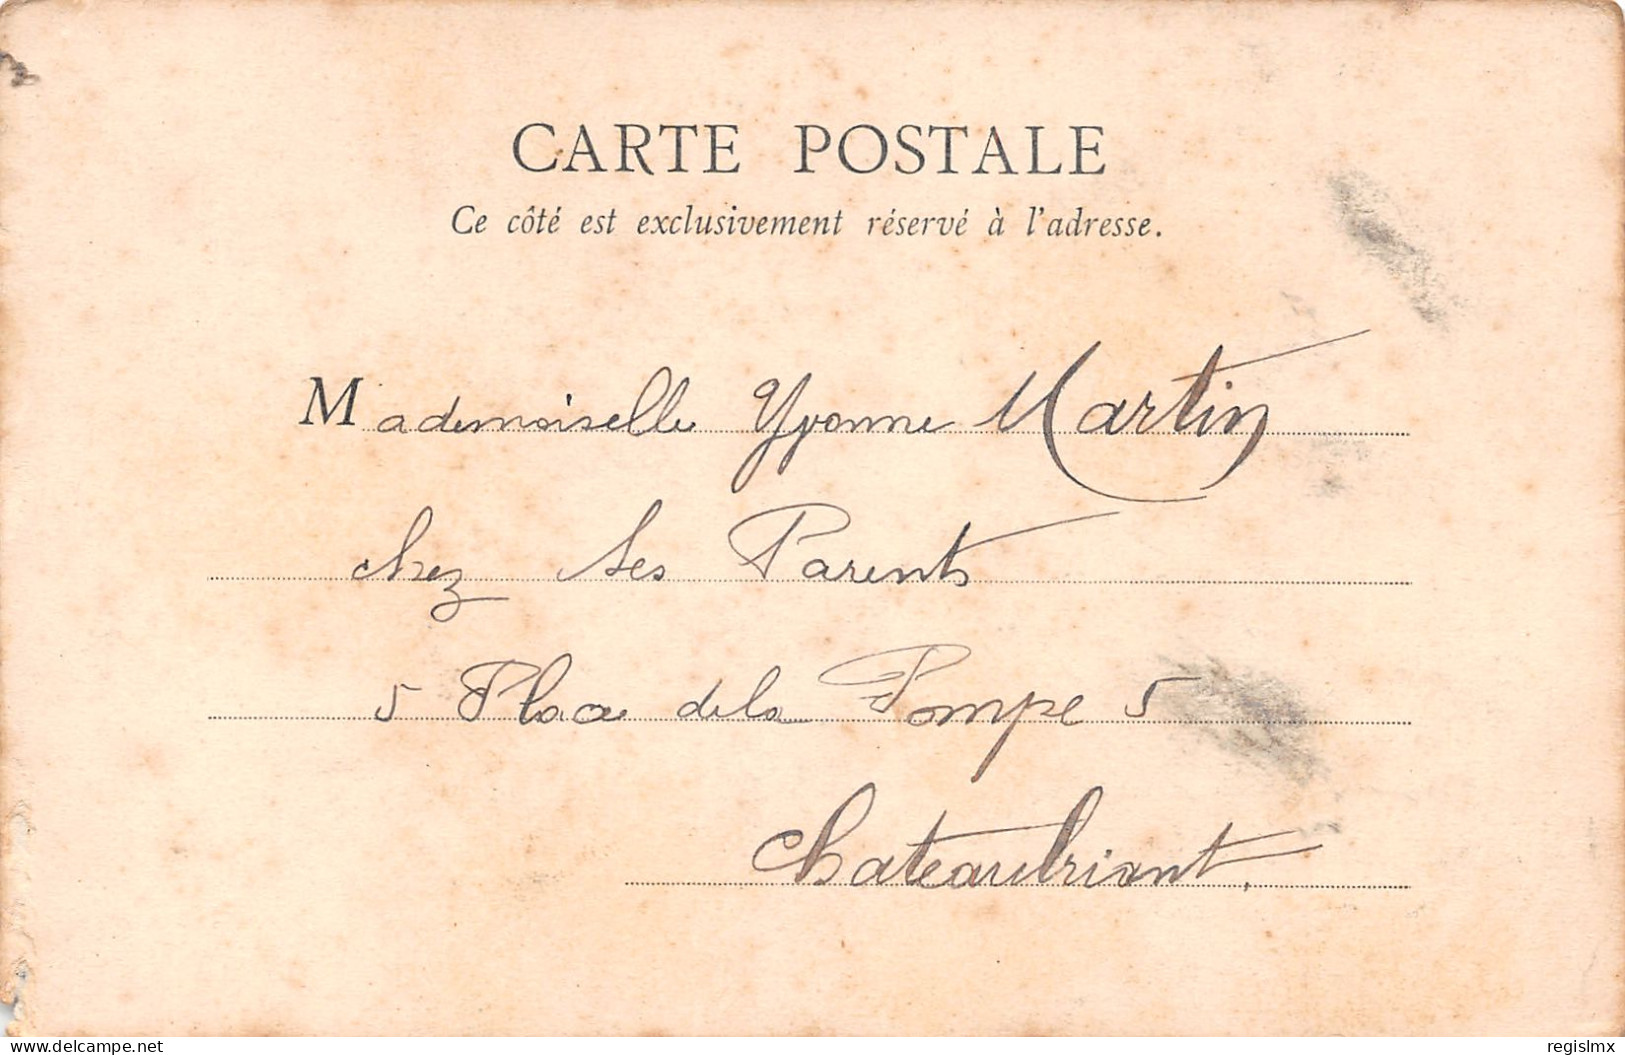 CARTE POSTALE
Ce côté est exclusivement réservé à l'adresse.
Mademoiselle Yvonne Martin
chez ses Parents
5 Place de la Pompe 5
Chateaubriant.
www.delcampe.net
regislmx